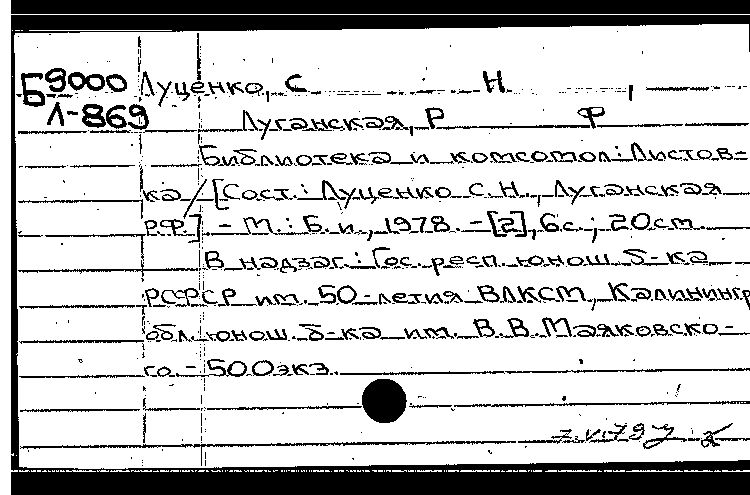 Б9000 Луценко, С Н ,
Л-869 Луганская, Р Ф
Библиотека и комсомол: Листов-
ка / [Сост.: Луценко С.Н., Луганская
Р.Ф.] - М.: Б. и., 1978. - [2], 6с.; 20см.
В надзаг.: Гос. респ. юнош. б-ка
РСФСР им. 50-летия ВЛКСМ, Калинингр
обл. юнош. б-ка им. В.В. Маяковско-
го. - 500экз.
7.VI.79